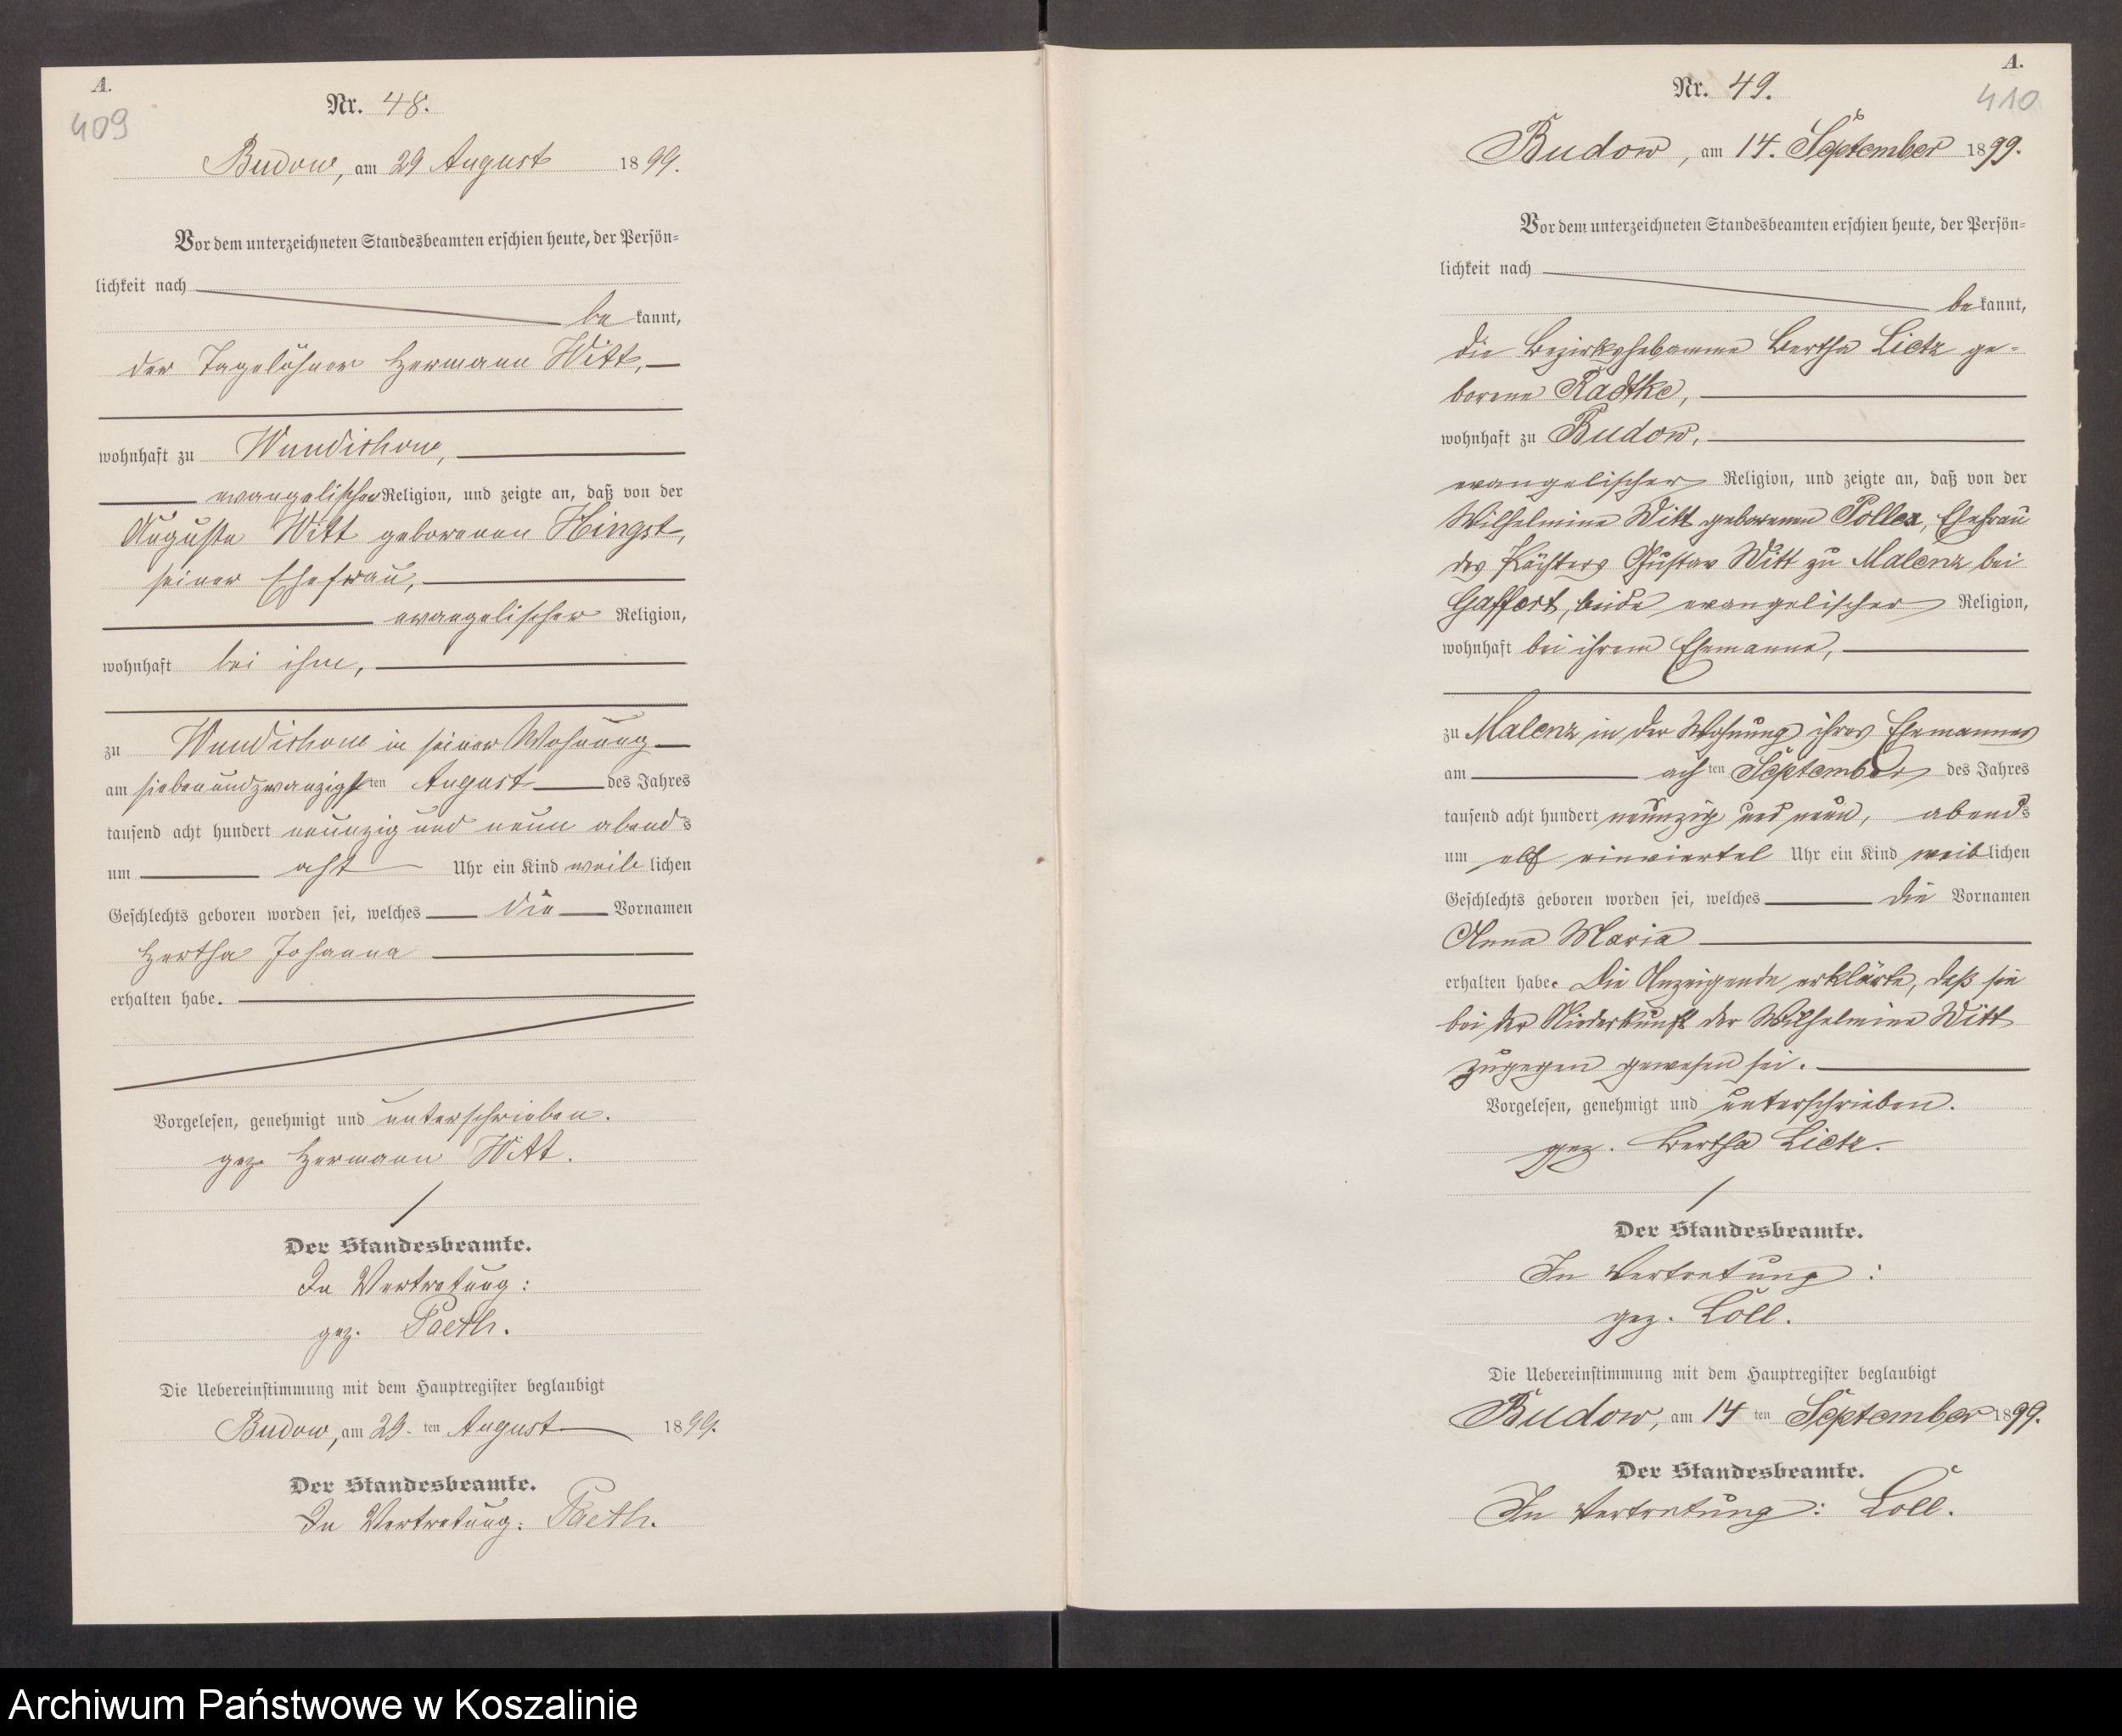 A.
409
Nr. 48.
Budow, am 29 August 1899.
Vor dem unterzeichneten Standesbeamten erschien heute, der Persön=
lichkeit nach
be kannt,
der Tagelöhner Hermann Witt,
wohnhaft zu Wundichow,
evangelischer Religion, und zeigte an, daß von der
Auguste Witt geborenen Hingst,
seiner Ehefrau,
evangelischer Religion,
wohnhaft bei ihm,
zu Wundichow in seiner Wohnung
am siebenundzwanzigsten August des Jahres
tausend acht hundert neunzig und neun abends
um acht Uhr ein Kind weib lichen
Geschlechts geboren worden sei, welches die Vornamen
Hertha Johanna
erhalten habe.
Vorgelesen, genehmigt und unterschrieben.
gez. Hermann Witt.
Der Standesbeamte.
In Vertretung:
gez. Paeth.
Die Uebereinstimmung mit dem Hauptregister beglaubigt
Budow, am 29. ten August 1899.
Der Standesbeamte.
In Vertretung: Paeth.
A.
410
Nr. 49.
Budow, am 14. September 1899.
Vor dem unterzeichneten Standesbeamten erschien heute, der Persön=
lichkeit nach
be kannt,
die Bezirkshebamme Bertha Lietz ge=
borene Radtke,
wohnhaft zu Budow,
evangelischer Religion, und zeigte an, daß von der
Wilhelmine Witt geborenen Pollex, Ehefrau
des Pächters Gustav Witt zu Malenz bei
Gaffert, beide evangelischer Religion,
wohnhaft bei ihrem Ehemanne,
zu Malenz in der Wohnung ihres Ehemannes
am achten September des Jahres
tausend acht hundert neunzig und neun, abends
um elf einviertel Uhr ein Kind weib lichen
Geschlechts geboren worden sei, welches die Vornamen
Anna Maria
erhalten habe. Die Anzeigende erklärte, daß sie
bei der Niederkunft der Wilhelmine Witt
zugegen gewesen sei.
Vorgelesen, genehmigt und unterschrieben.
gez. Bertha Lietz.
Der Standesbeamte.
In Vertretung:
gez. Loll.
Die Uebereinstimmung mit dem Hauptregister beglaubigt
Budow, am 14 ten September 1899.
Der Standesbeamte.
In Vertretung: Loll.
Archiwum Państwowe w Koszalinie